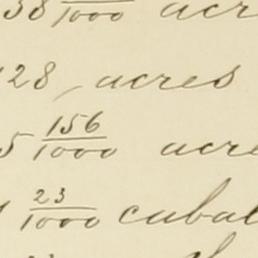 38 /1000 acr
28, acres
5 156/1000 acre
23/1000 cubal